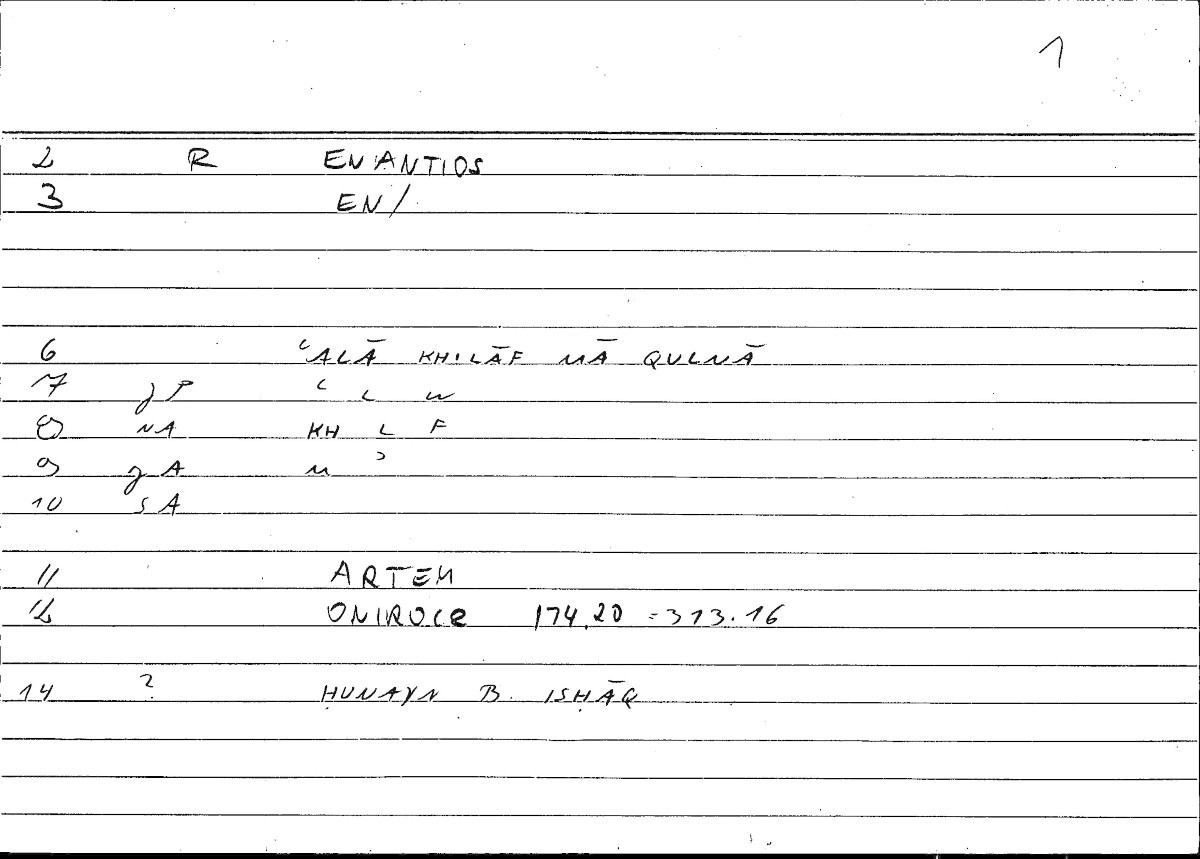 1
2 R ENANTIOS
3 EN/
6 ʿALĀ KHILĀF MĀ QULNĀ
7 gP ʿ L W
8 NA KH L F
9 gA M ʾ
10 SA
11 ARTEM
12 ONIROCR 174,20 = 313.16
14 ? ḤUNAYN B. ISḤĀQ